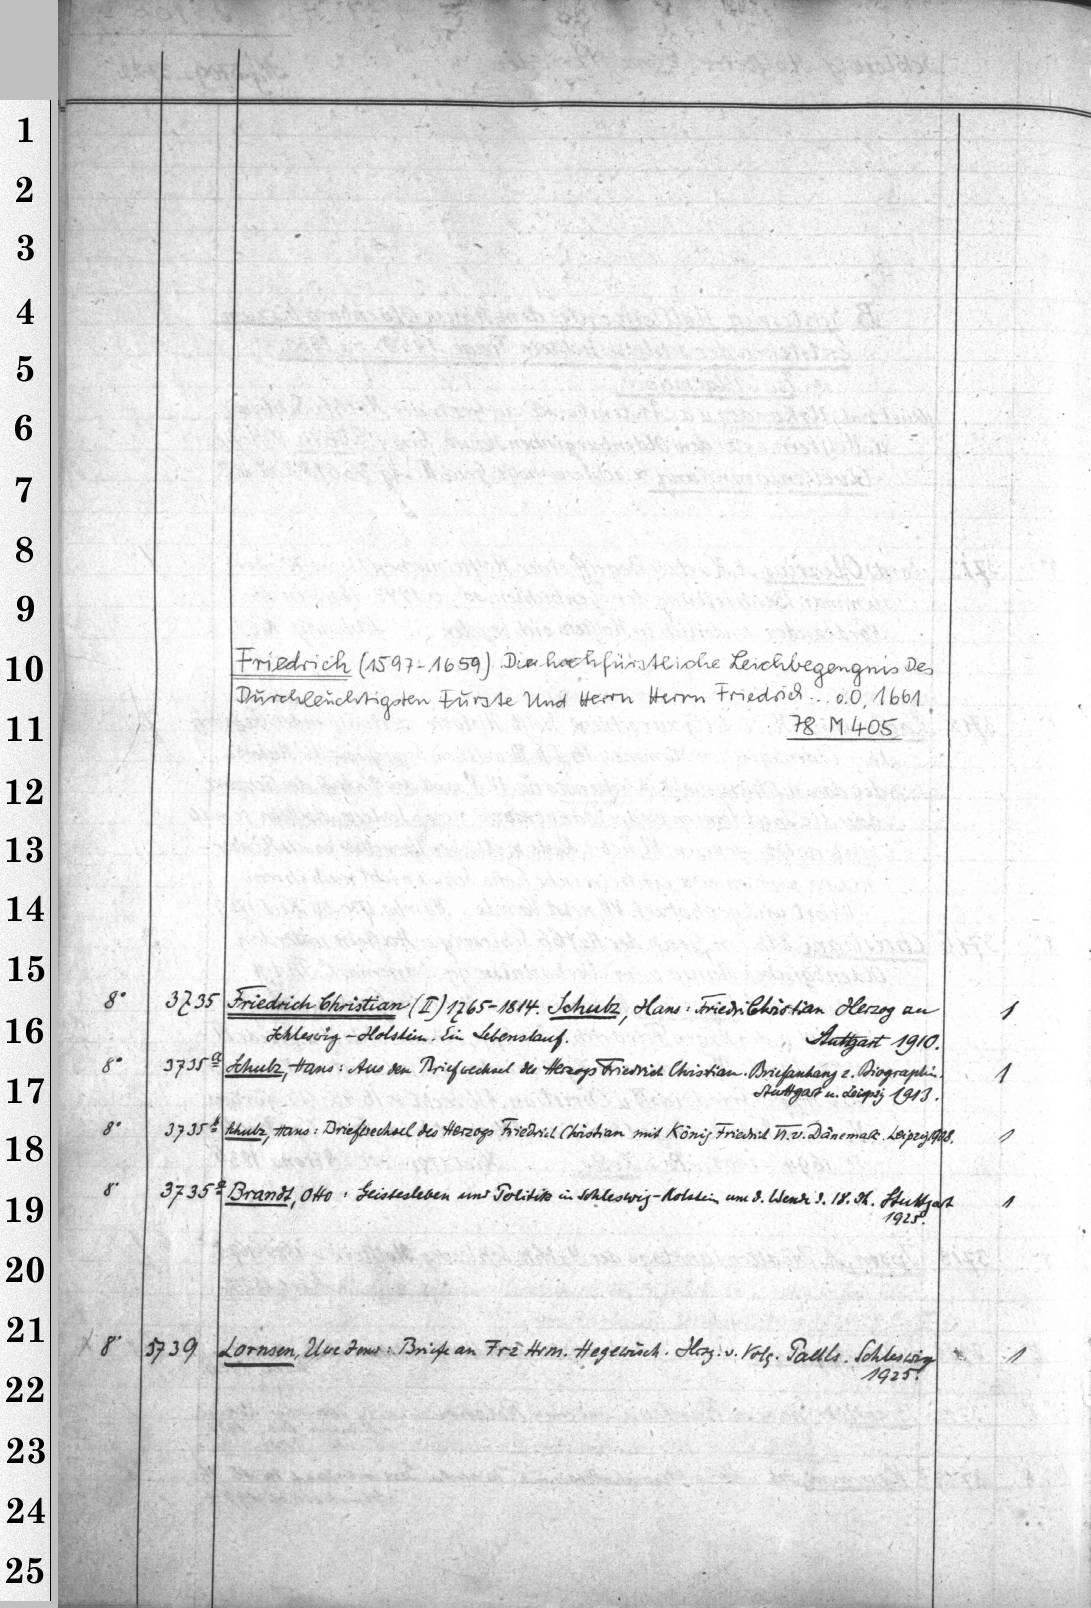 1
2
3
4
5
6
7
8
9
10
Friedrich (1597-1659) Die hochfürstliche Leichbegengnis Des
Durchleuchtigsten Fürste Und Herrn Herrn Friedrich... o.O. 1661.
11
78 M 405
12
13
14
15
8° 3735 Friedrich Christian (II) 1765-1814. Schulz, Hans: Friedrich Christian Herzog zu 1
16
Schleswig-Holstein. Ein Lebenslauf. Stuttgart 1910.
8° 3735a Schulz, Hans: Aus dem Briefwechsel des Herzogs Friedrich Christian. Briefanhang z. Biographie. 1
17
Stuttgart u. Leipzig 1913.
8° 3735b Schulz, Hans: Briefwechsel des Herzogs Friedrich Christian mit König Friedrich VI. v. Dänemark. Leipzig 1908. 1
18
8° 3735c Brandt, Otto: Geistesleben und Politik in Schleswig-Holstein um d. Wende d. 18. Jh. Stuttgart 1
19
1925.
20
21
8° 3739 Lornsen, Uwe Jens: Briefe an Frz Herm. Hegewisch. Hrsg. v. Volq. Pauls. Schleswig 1
1925.
22
23
24
25